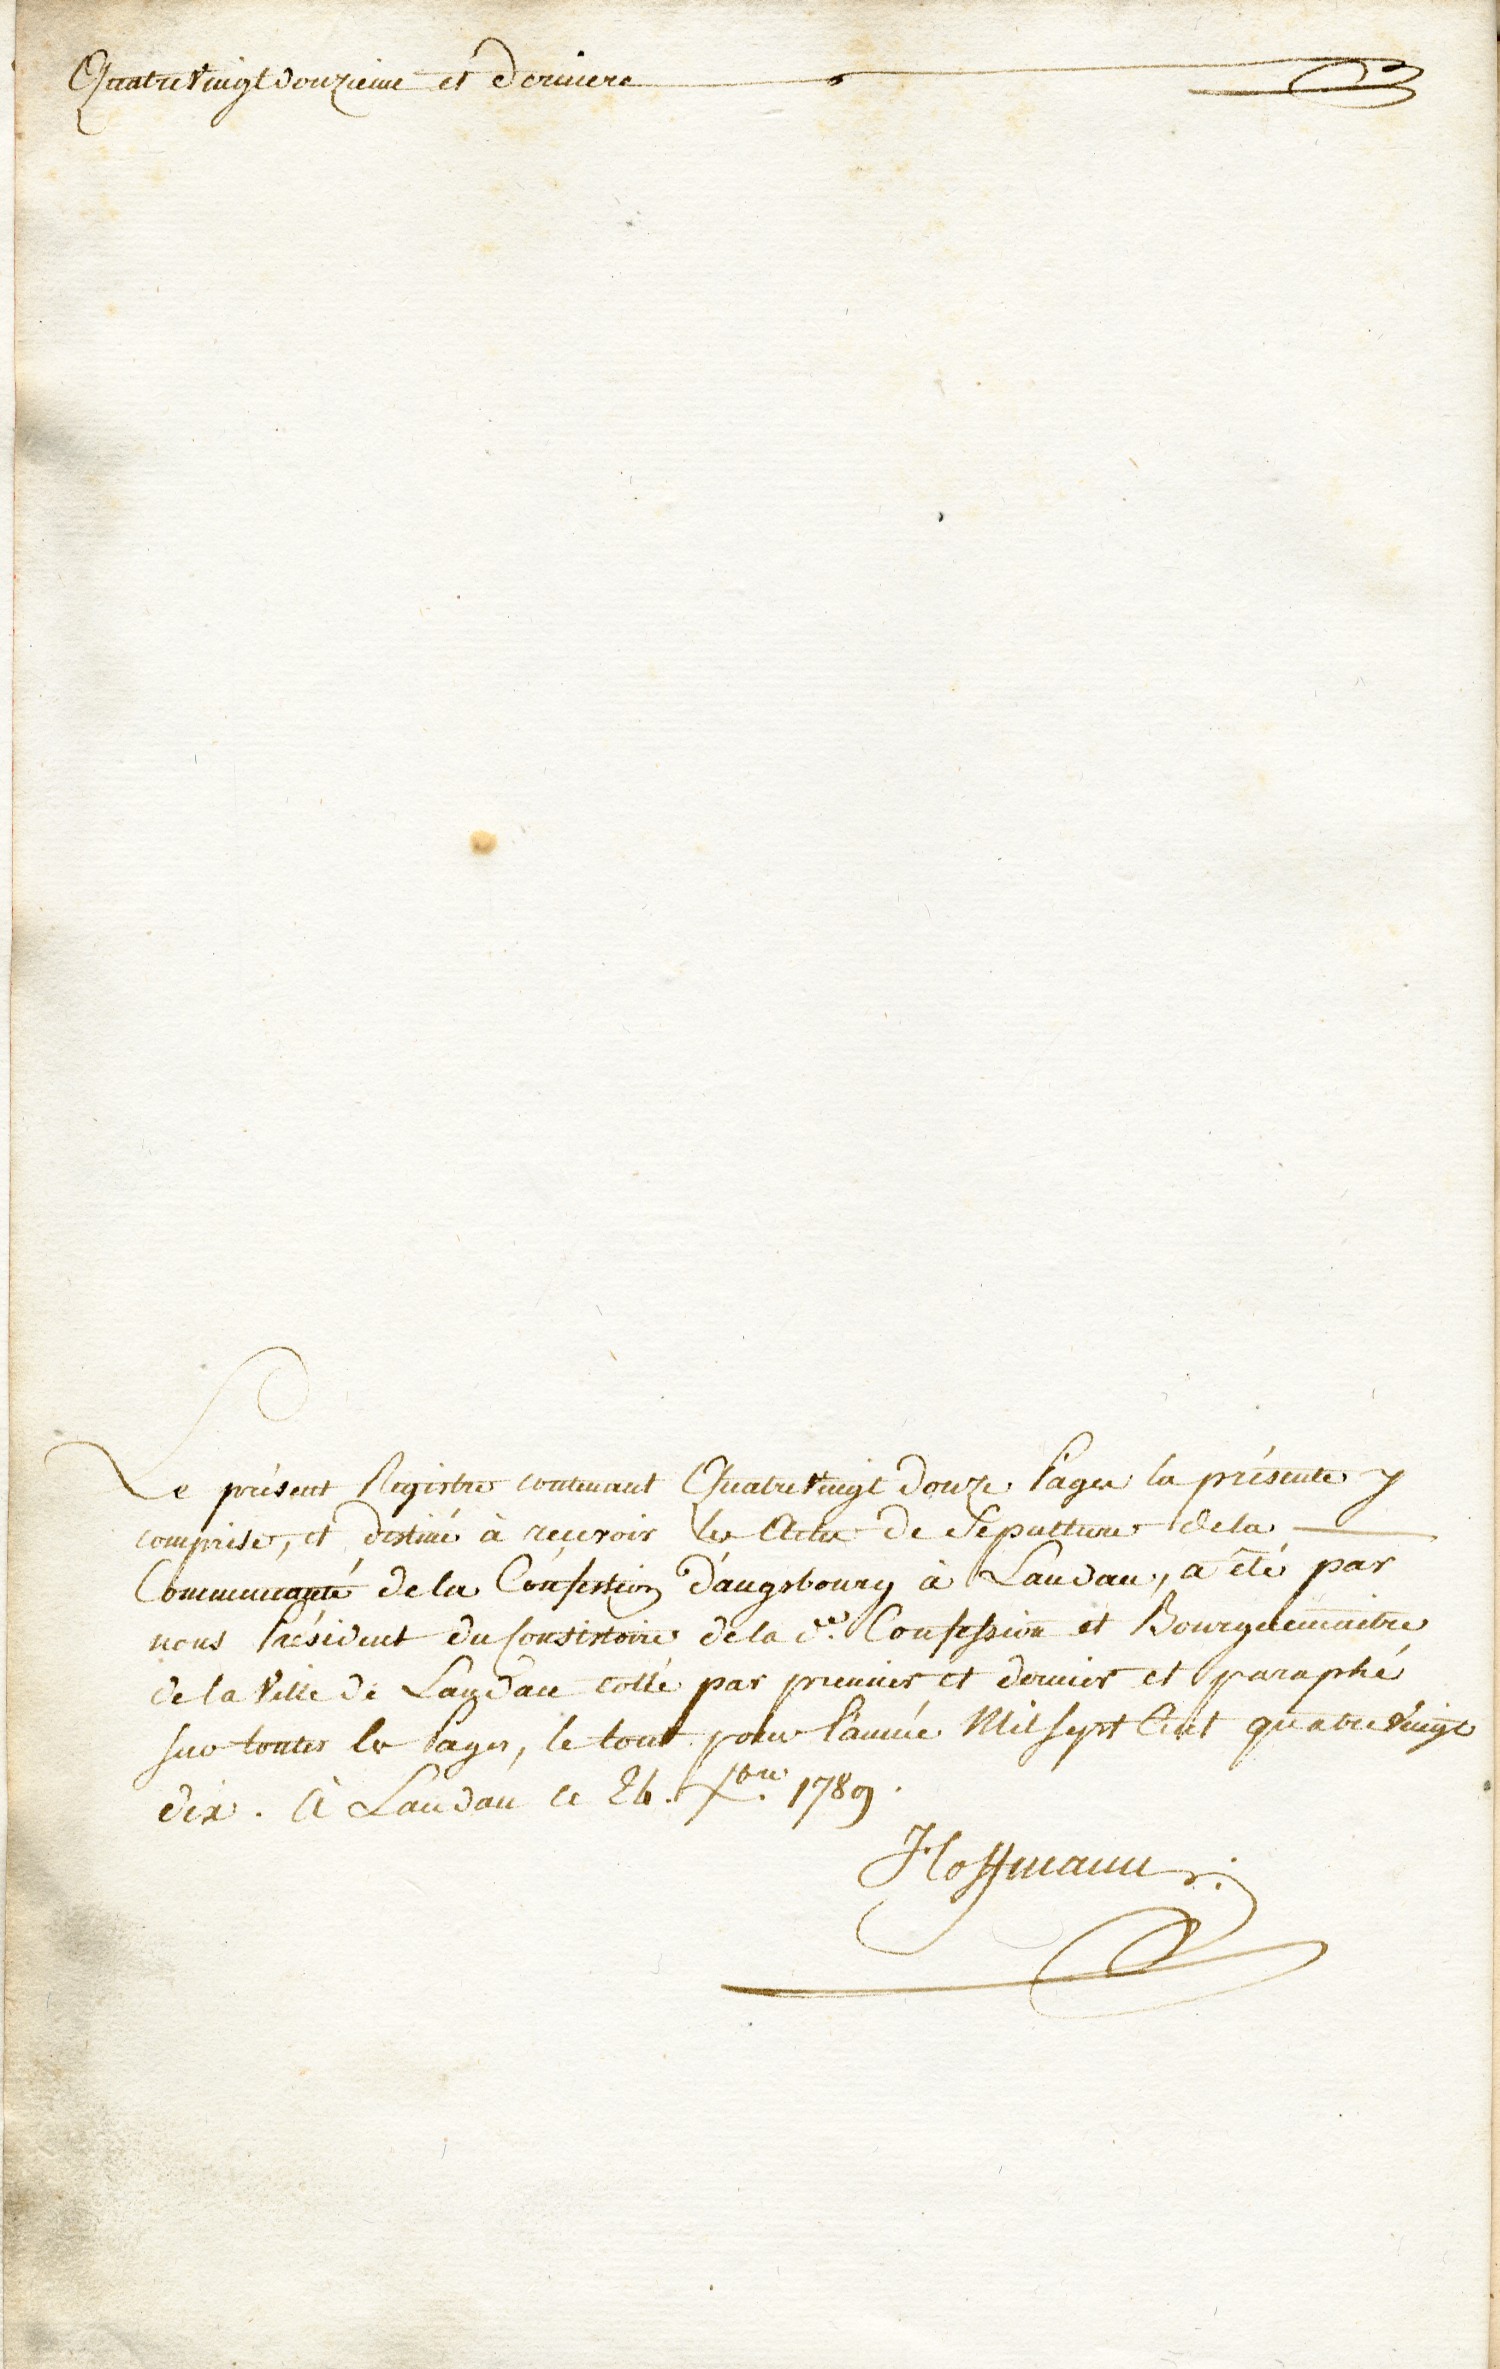 Quatre Vingt Douzieme et Derniere
Le présent Registre contenant Quatre Vingt Douze Pages la présente y
comprise, et destiné à recevoir les Actes de Sepulture de la
Communauté de la Confession d'augsbourg à Landau, a été par
nous Président du Consistoire de la de. Confession et Bourguemaitre
de la Ville de Landau cotté par premier et dernier et paraphé
sur toutes les Pages, le tout pour l'année Mil Sept Cent quatre Vingt
dix. à Landau le 24. Xbre. 1789.
Hoffmann